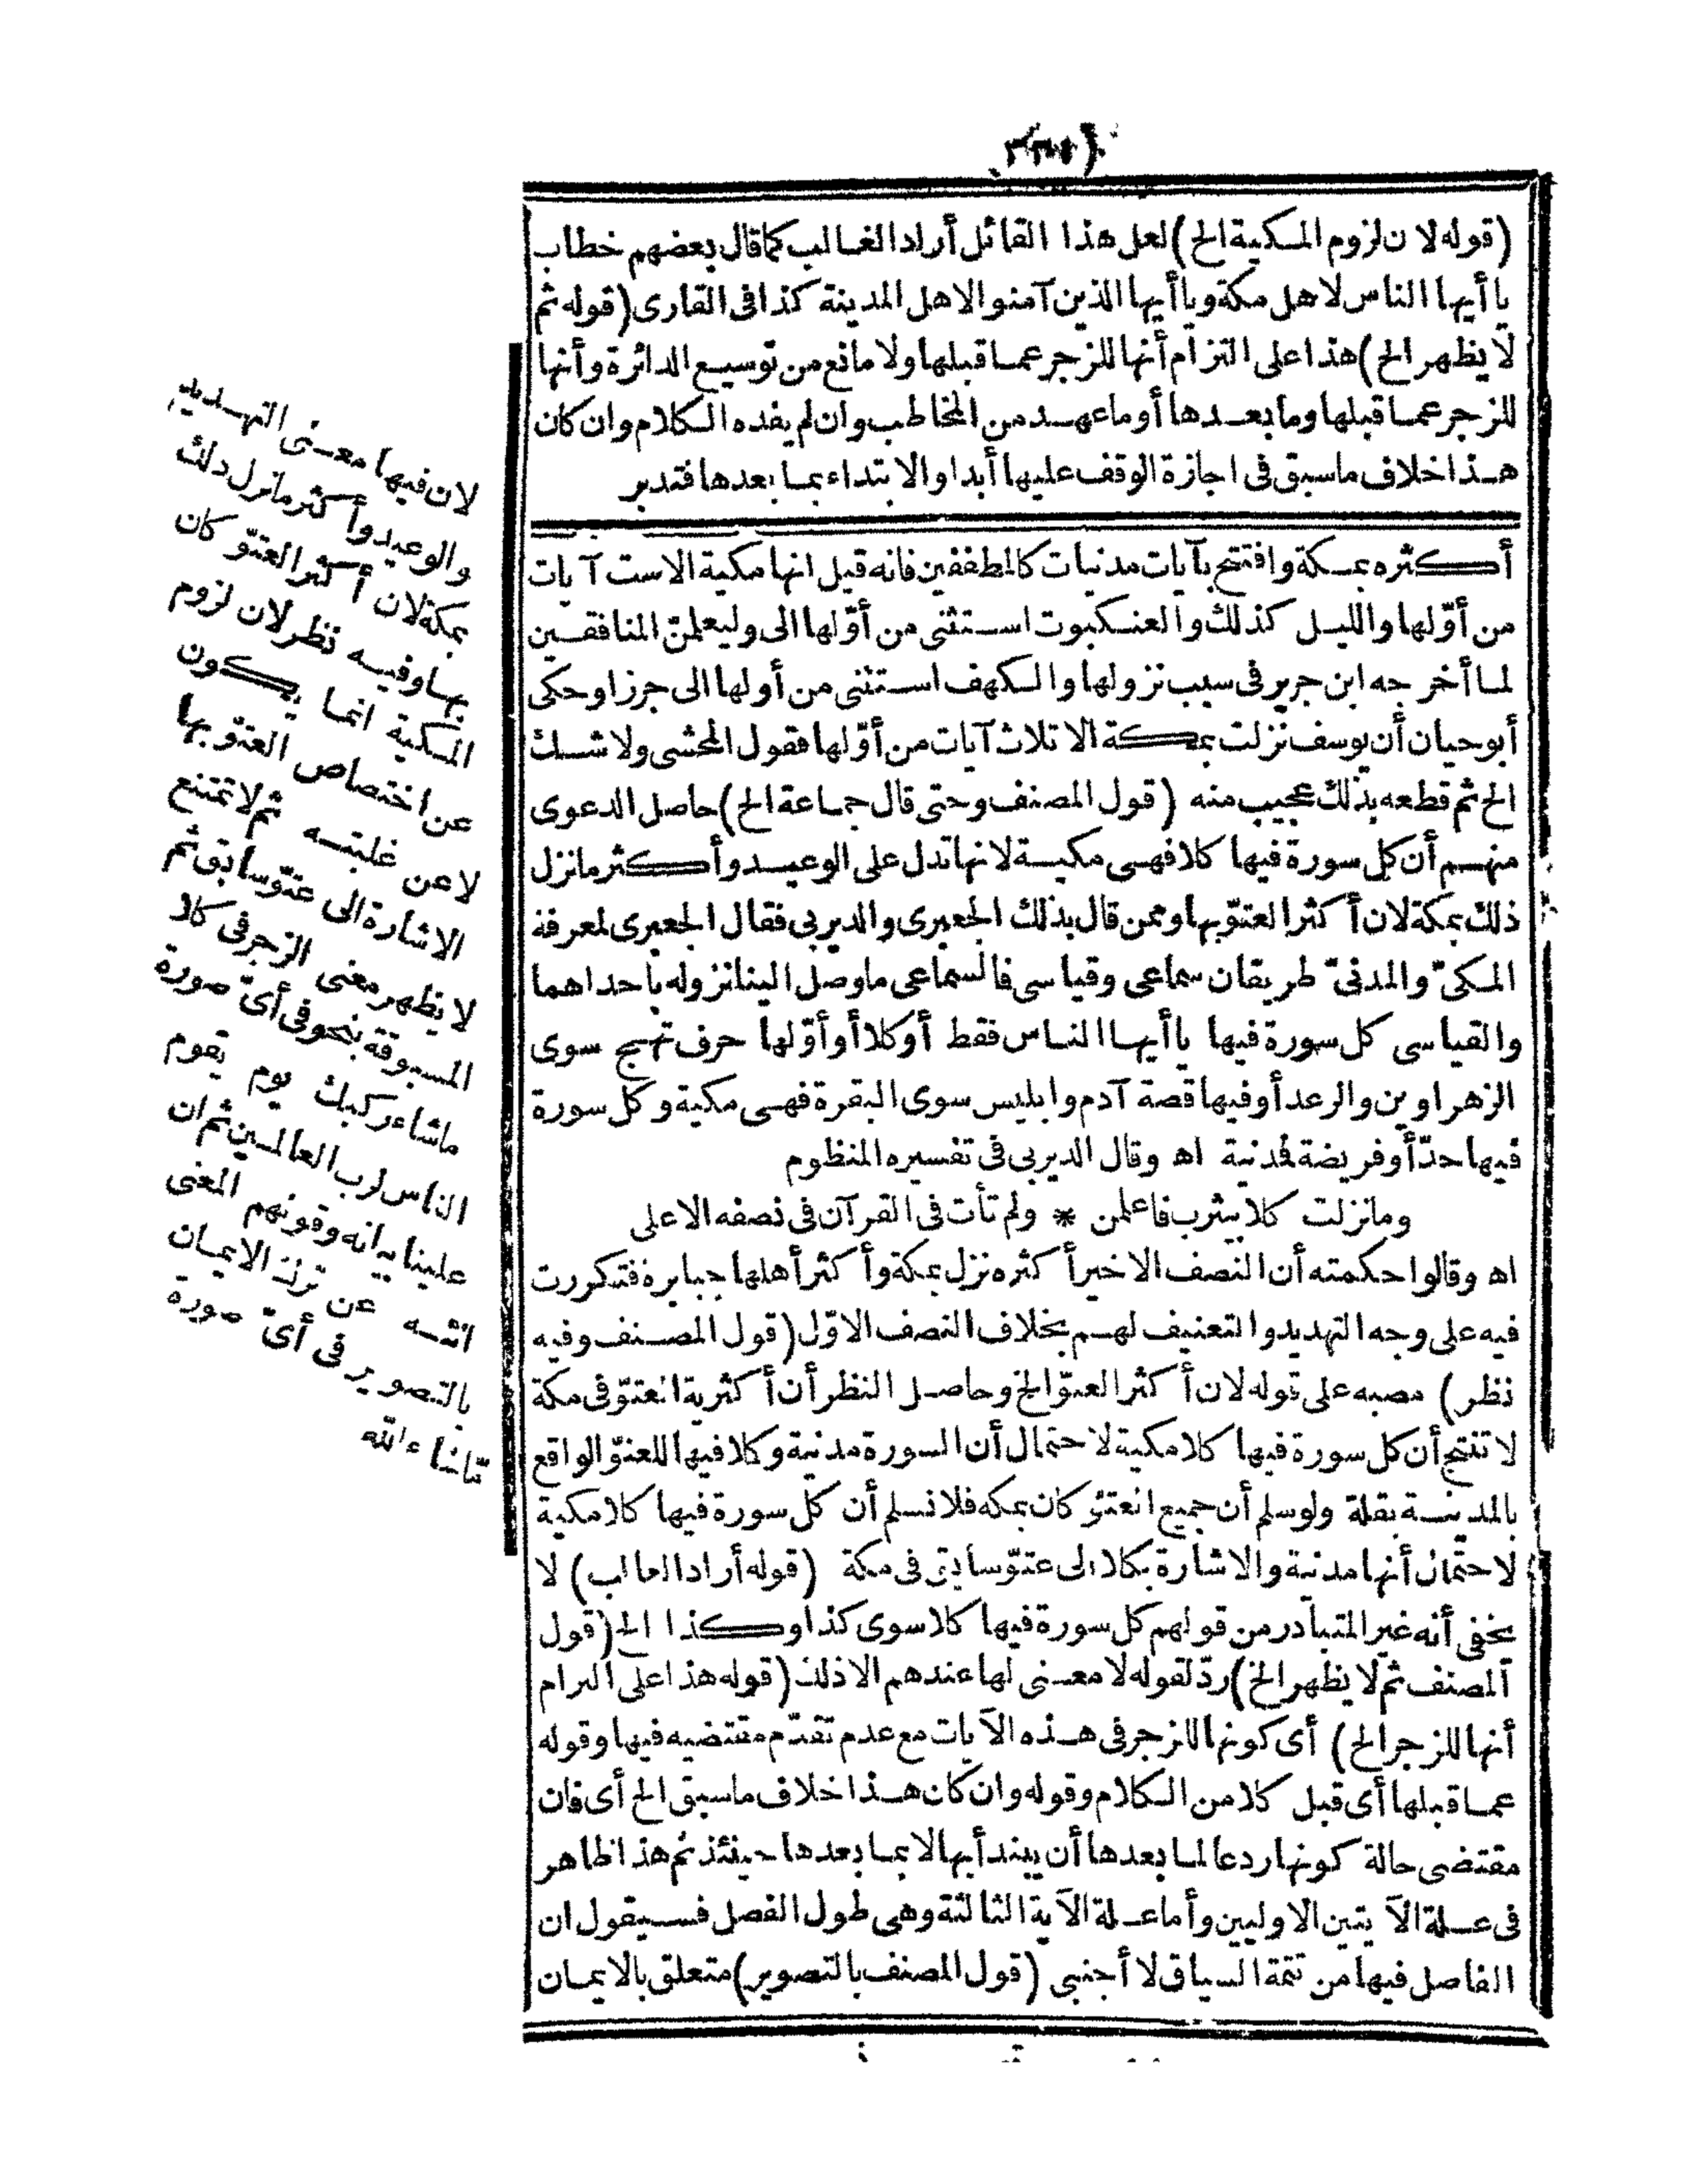 (قوله لان لزوم المكية الخ) لعل هذا القائل أراد الغالب كما قال بعضهم خطاب
يا أيها الناس لاهل مكة ويا أيها الذين آمنوا لاهل المدينة كذا في القارى (قوله ثم
لا يظهر الخ) هذا على التزام أنها للزجر عما قبلها ولا مانع من توسيع الدائرة وأنها
للزجر عما قبلها وما بعدها أو ما عهد من المخاطب وان لم يفده الكلام وان كان
هذا خلاف ما سبق فى اجازة الوقف عليها أبدا والابتداء بما بعدها فتدبر
أكثره بمكة وافتتح بآيات مدنيات كالمطففين فانه قيل انها مكية الا ست آيات
من أوّلها والليل كذلك والعنكبوت استثنى من أوّلها الى وليعلمنّ المنافقين
لما أخرجه ابن جرير فى سبب نزولها والكهف استثنى من أولها الى جرزا وحكى
أبو حيان أن يوسف نزلت بمكة الا ثلاث آيات من أوّلها فقول المحشى ولا شك
الخ ثم قطعه بذلك عجيب منه (قول المصنف وحتى قال جماعة الخ) حاصل الدعوى
منهم أن كل سورة فيها كلا فهى مكية لانها تدل على الوعيد وأكثر ما نزل
ذلك بمكة لان أكثر العتوّ بها وممن قال بذلك الجعبرى والديربى فقال الجعبرى لمعرفة
المكىّ والمدنىّ طريقان سماعى وقياسى فالسماعى ما وصل الينا نزوله باحداهما
والقياسى كل سورة فيها يا أيها الناس فقط أو كلا أو أوّلها حرف تهج سوى
الزهراوين والرعد أو فيها قصة آدم وابليس سوى البقرة فهى مكية وكل سورة
فيها حدّ أو فريضة فمدنية اه وقال الديربى فى تفسيره المنظوم
وما نزلت كلا بيثرب فاعلمن * ولم تأت فى القرآن فى نصفه الاعلى
اه وقالوا حكمته أن النصف الاخير أكثره نزل بمكة وأكثر أهلها جبابرة فتكررت
فيه على وجه التهديد والتعنيف لهم بخلاف النصف الاوّل (قول المصنف وفيه
نظر) مصبه على قوله لان أكثر العتوّ الخ وحاصل النظر أن أكثرية العتوّ فى مكة
لا تنتج أن كل سورة فيها كلا مكية لاحتمال أن السورة مدنية وكلا فيها للعتوّ الواقع
بالمدينة بقلة ولو سلم أن جميع العتوّ كان بمكه فلا نسلم أن كل سورة فيها كلا مكية
لاحتمال أنها مدنية والاشارة بكلا الى عتوّ سابق فى مكة (قوله أراد الغالب) لا
يخفى أنه غير المتبادر من قولهم كل سورة فيها كلا سوى كذا وكذا الخ (قول
المصنف ثم لا يظهر الخ) ردّ لقوله لا معنى لها عندهم الا ذلك (قوله هذا على التزام
أنها للزجر الخ) أى كونها للزجر فى هذه الآيات مع عدم تقدّم مقتضيه فيها وقوله
عما قبلها أى قبل كلا من الكلام وقوله وان كان هذا خلاف ما سبق الخ أى فان
مقتضى حالة كونها ردعا لما بعدها أن يبتدأ بها لا بما بعدها حينئذ ثم هذا ظاهر
فى علة الآيتين الاوليين وأما علة الآية الثالثة وهى طول الفصل فسيقول ان
الفاصل فيها من تتمة السياق لا أجنبى (قول المصنف بالتصوير) متعلق بالايمان
لان فيها معنى التهديد
والوعيد وأكثر ما نزل ذلك
بمكة لان أكثر العتوّ كان
بها وفيه نظر لان لزوم
المكية انما يكون
عن اختصاص العتوّ بها
لا عن غلبته ثم لا تمتنع
الاشارة الى عتوّ سابق ثم
لا يظهر معنى الزجر فى كلا
المسبوقة بنحو فى أىّ صورة
ما شاء ركبك يوم يقوم
الناس لرب العالمين ثم ان
علينا بيانه وقولهم المعنى
انته عن ترك الايمان
بالتصوير فى أىّ صورة
ما شاء الله